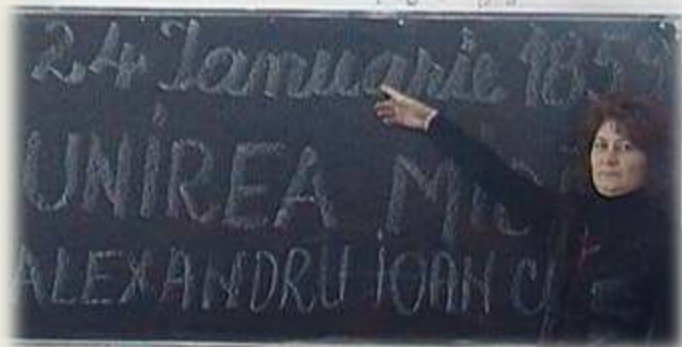 24 Ianuarie 1859
UNIREA
ALEXANDRU IOAN